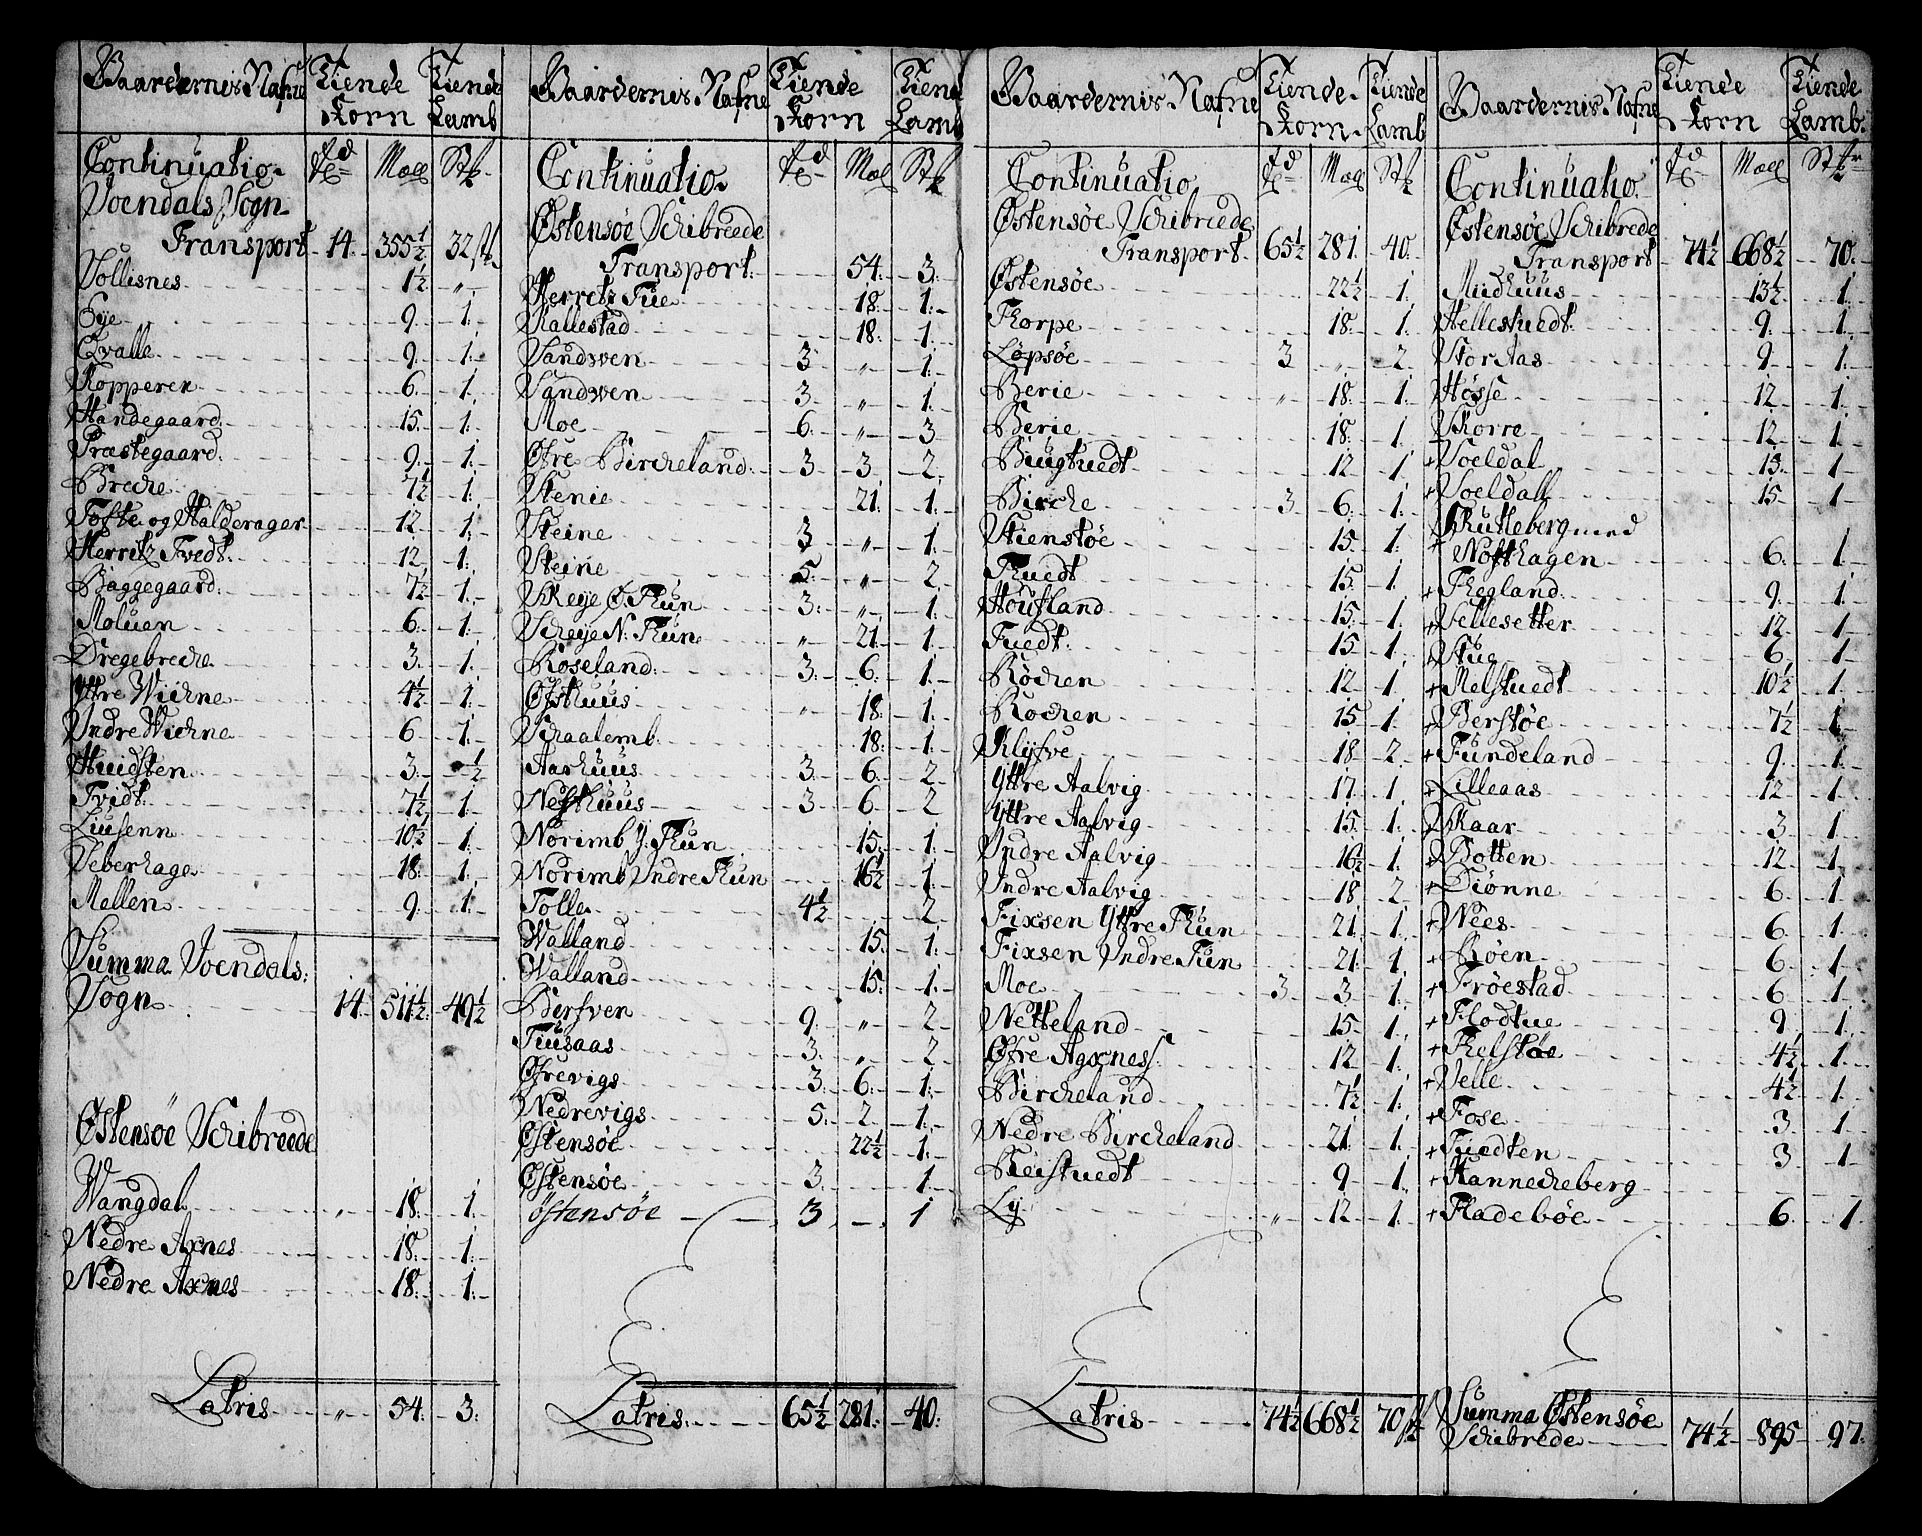 Gaardernis Nafne Tiende Korn Tiende Lamb
Continuatio Td Mæll Stk
Joendals Sogn
Transport 14 355½ 32 stk
Sollisnes 1½ „
Eye 9 1
Qvalle 9 1
Kopperen 6 1
Handegaard 15 1
Præstegaard 9 1
Breche 7½ 1
Tofte og Halderager 12 1
Herritz Tvedt 12 1
Baggegaard 7½ 1
Moluen 6 1
Dregebreche 3 1
Yttre Wichne 4½ 1
Yndre Wichne 6 1
Huidsten 3 ½
Tvidt 7½ 1
Liusenn 10½ 1
Seberhage 18 1
Mellen 9 1
Summa Joendals
Sogn 14 511½ 49½
Østensøe Schibreede
Wangdal „ 18 1
Nedre Axnes 18 1
Nedre Axnes 18 1
Latris „ 54 3
Gaardernis Nafne Tiende Korn Tiende Lamb
Continuatio Td Mæl Stk
Østensøe Schibreede
Transport 54 3
Herretz Tue 18 1
Kallestad 18 1
Sandven 3 „ 1
Sandven 3 „ 1
Moe 6 „ 3
Øfre Bircheland 3 3 2
Stenie 21 1
Steine 3 „ 1
Steine 5 „ 2
Skeye Ø. Thun 3 „ 1
Scheye N. Thun „ 21 1
Roseland 3 6 1
Østhuus „ 18 1
Schaalemb 18 1
Aarhuus 3 6 2
Nesthuus 3 6 2
Norimb Y. Thun 15 1
Norimb Yndre Thun 16½ 1
Tolle 4½ 2
Walland 15 1
Walland 15 1
Bersven 9 „ 2
Tiusaas 3 „ 2
Øfrevigs 3 6 1
Nedrevigs 5 2 1
Østensøe 22½ 1
Østensøe 3 1
Östensöe 3 1
Latris 65½ 281 40
Gaardernis Nafne Tiende Korn Tiende Lamb
Continuatio Td Mæll Stk
Østensøe Schibreede
Transport 65½ 281 40
Østensøe 22½ 1
Thorpe 18 1
Løpsøe 3 „ 2
Berie „ 18 1
Berie 18 1
Biugtuedt 12 1
Birche 3 6 1
Stienstøe 15 1
Thuedt 15 1
Houfland 15 1
Tuedt 15 1
Røchen 12 1
Rochen 15 1
Klyfve 18 2
Yttre Aalvig 17 1
Yttre Aalvig 15 1
Yndre Aalvig 16½ 1
Yndre Aalvig 18 2
Fixsen Yttre Thun 21 1
Fixsen Yndre Tun 21 1
Moe 3 3 1
Netteland 15 1
Øfre Agxnes 12 1
Bircheland 7½ 1
Nedre Bircheland 21 1
Reistuedt 9 1
Ly „ 12 1
Latris 74½ 668½ 70 stk
Gaardernis Nafne Tiende Korn Tiende Lamb
Continuatio Td Mæll Stkr
Østensøe Schibrede
Transport 74½ 668½ 70
Mudhuus 13½ 1
Hellestuedt 9 1
Stordas 9 1
Høsse 12 1
Skorre 12 1
+ Soeldal 15 1
+ Soeldall 15 1
+ Skutleberg med
Nosthagen 6 1
+ Skegland 9 1
+ Sellesetter 12 1
+ Stug 6 1
+ Melstuedt 10½ 1
+ Berstøe 7½ 1
+ Fundeland 9 1
+ Lilleaas 12 1
+ Skaar 3 1
+ Botten 12 1
+ Diønne 6 1
+ Nees 6 1
+ Røen 6 1
+ Frøestad 6 1
+ Flodtue 9 1
+ Thelstøe 4½ 1
+ Selle 4½ 1
+ Fose 3 1
+ Tuedten 3 1
+ Kanneckeberg
+ Fladebøe 6 1
Summa Østensøe
Schibrede 74½ 895 97